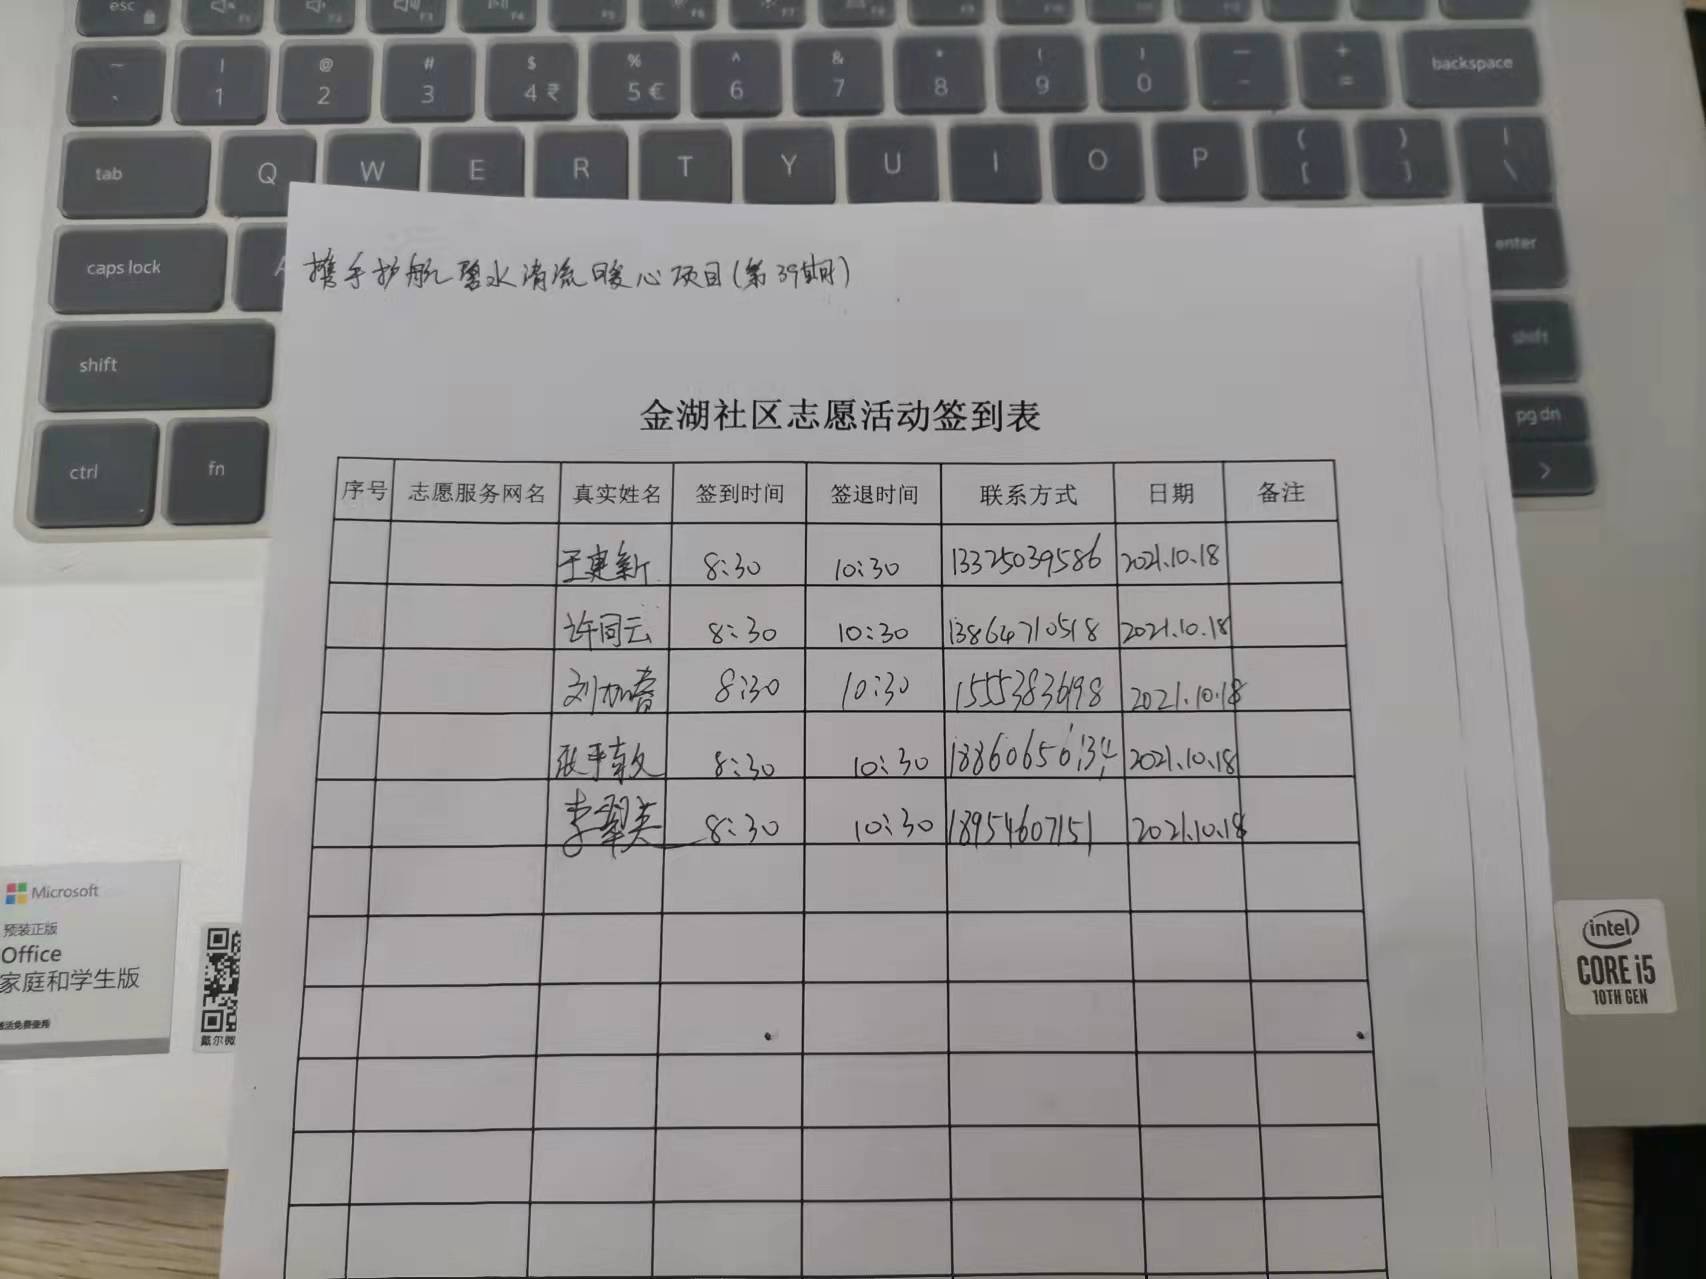 esc
F1 F2 F3 F4 F5 F6 F7 F8 F9
~ ! @ # $ % ^ & * ( ) — +
` 1 2 3 4 ₹ 5 € 6 7 8 9 0 - = backspace
tab Q W E R T Y U I O P { [ } ] | \
caps lock A enter
携手护航碧水清流暖心项目(第39期)
shift shift
金湖社区志愿活动签到表
ctrl fn pg dn >
序号 志愿服务网名 真实姓名 签到时间 签退时间 联系方式 日期 备注
王建新 8:30 10:30 13325039586 2021.10.18
许同云 8:30 10:30 13864710518 2021.10.18
8:30 10:30 2021.10.18
8:30 10:30 2021.10.18
李翠英 8:30 10:30 18954607151 2021.10.18
Microsoft
预装正版
Office
家庭和学生版
激活免费使用
戴尔微
intel
CORE i5
10TH GEN